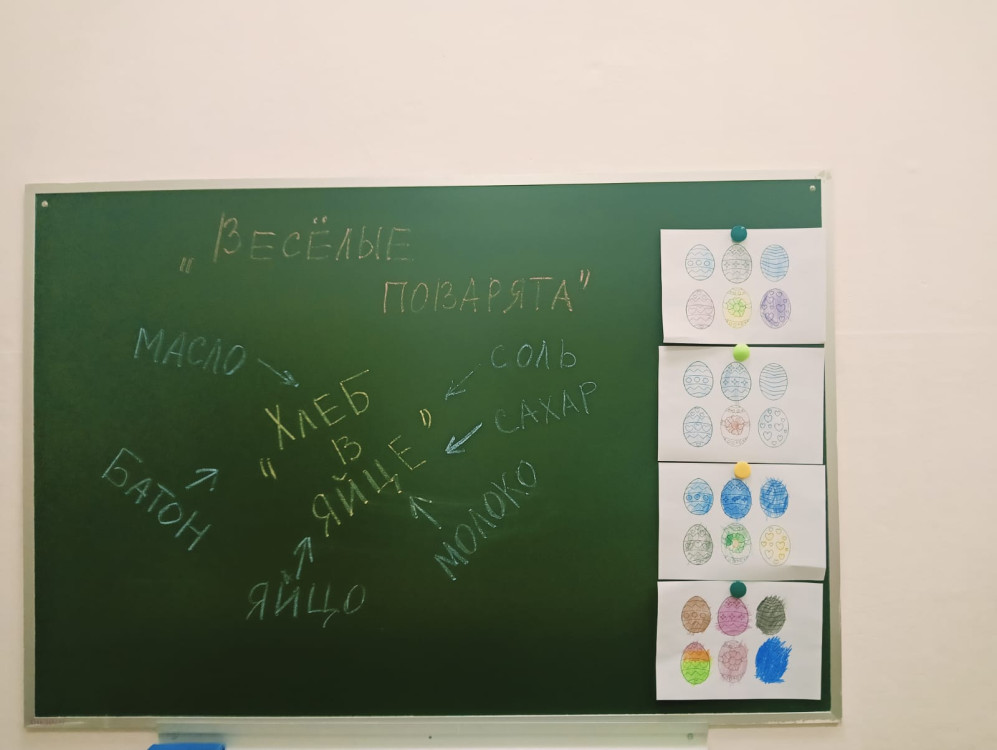 „ВЕСЁЛЫЕ
ПОВАРЯТА"
МАСЛО
СОЛЬ
САХАР
„ХЛЕБ
В
ЯЙЦЕ"
БАТОН
МОЛОКО
ЯЙЦО